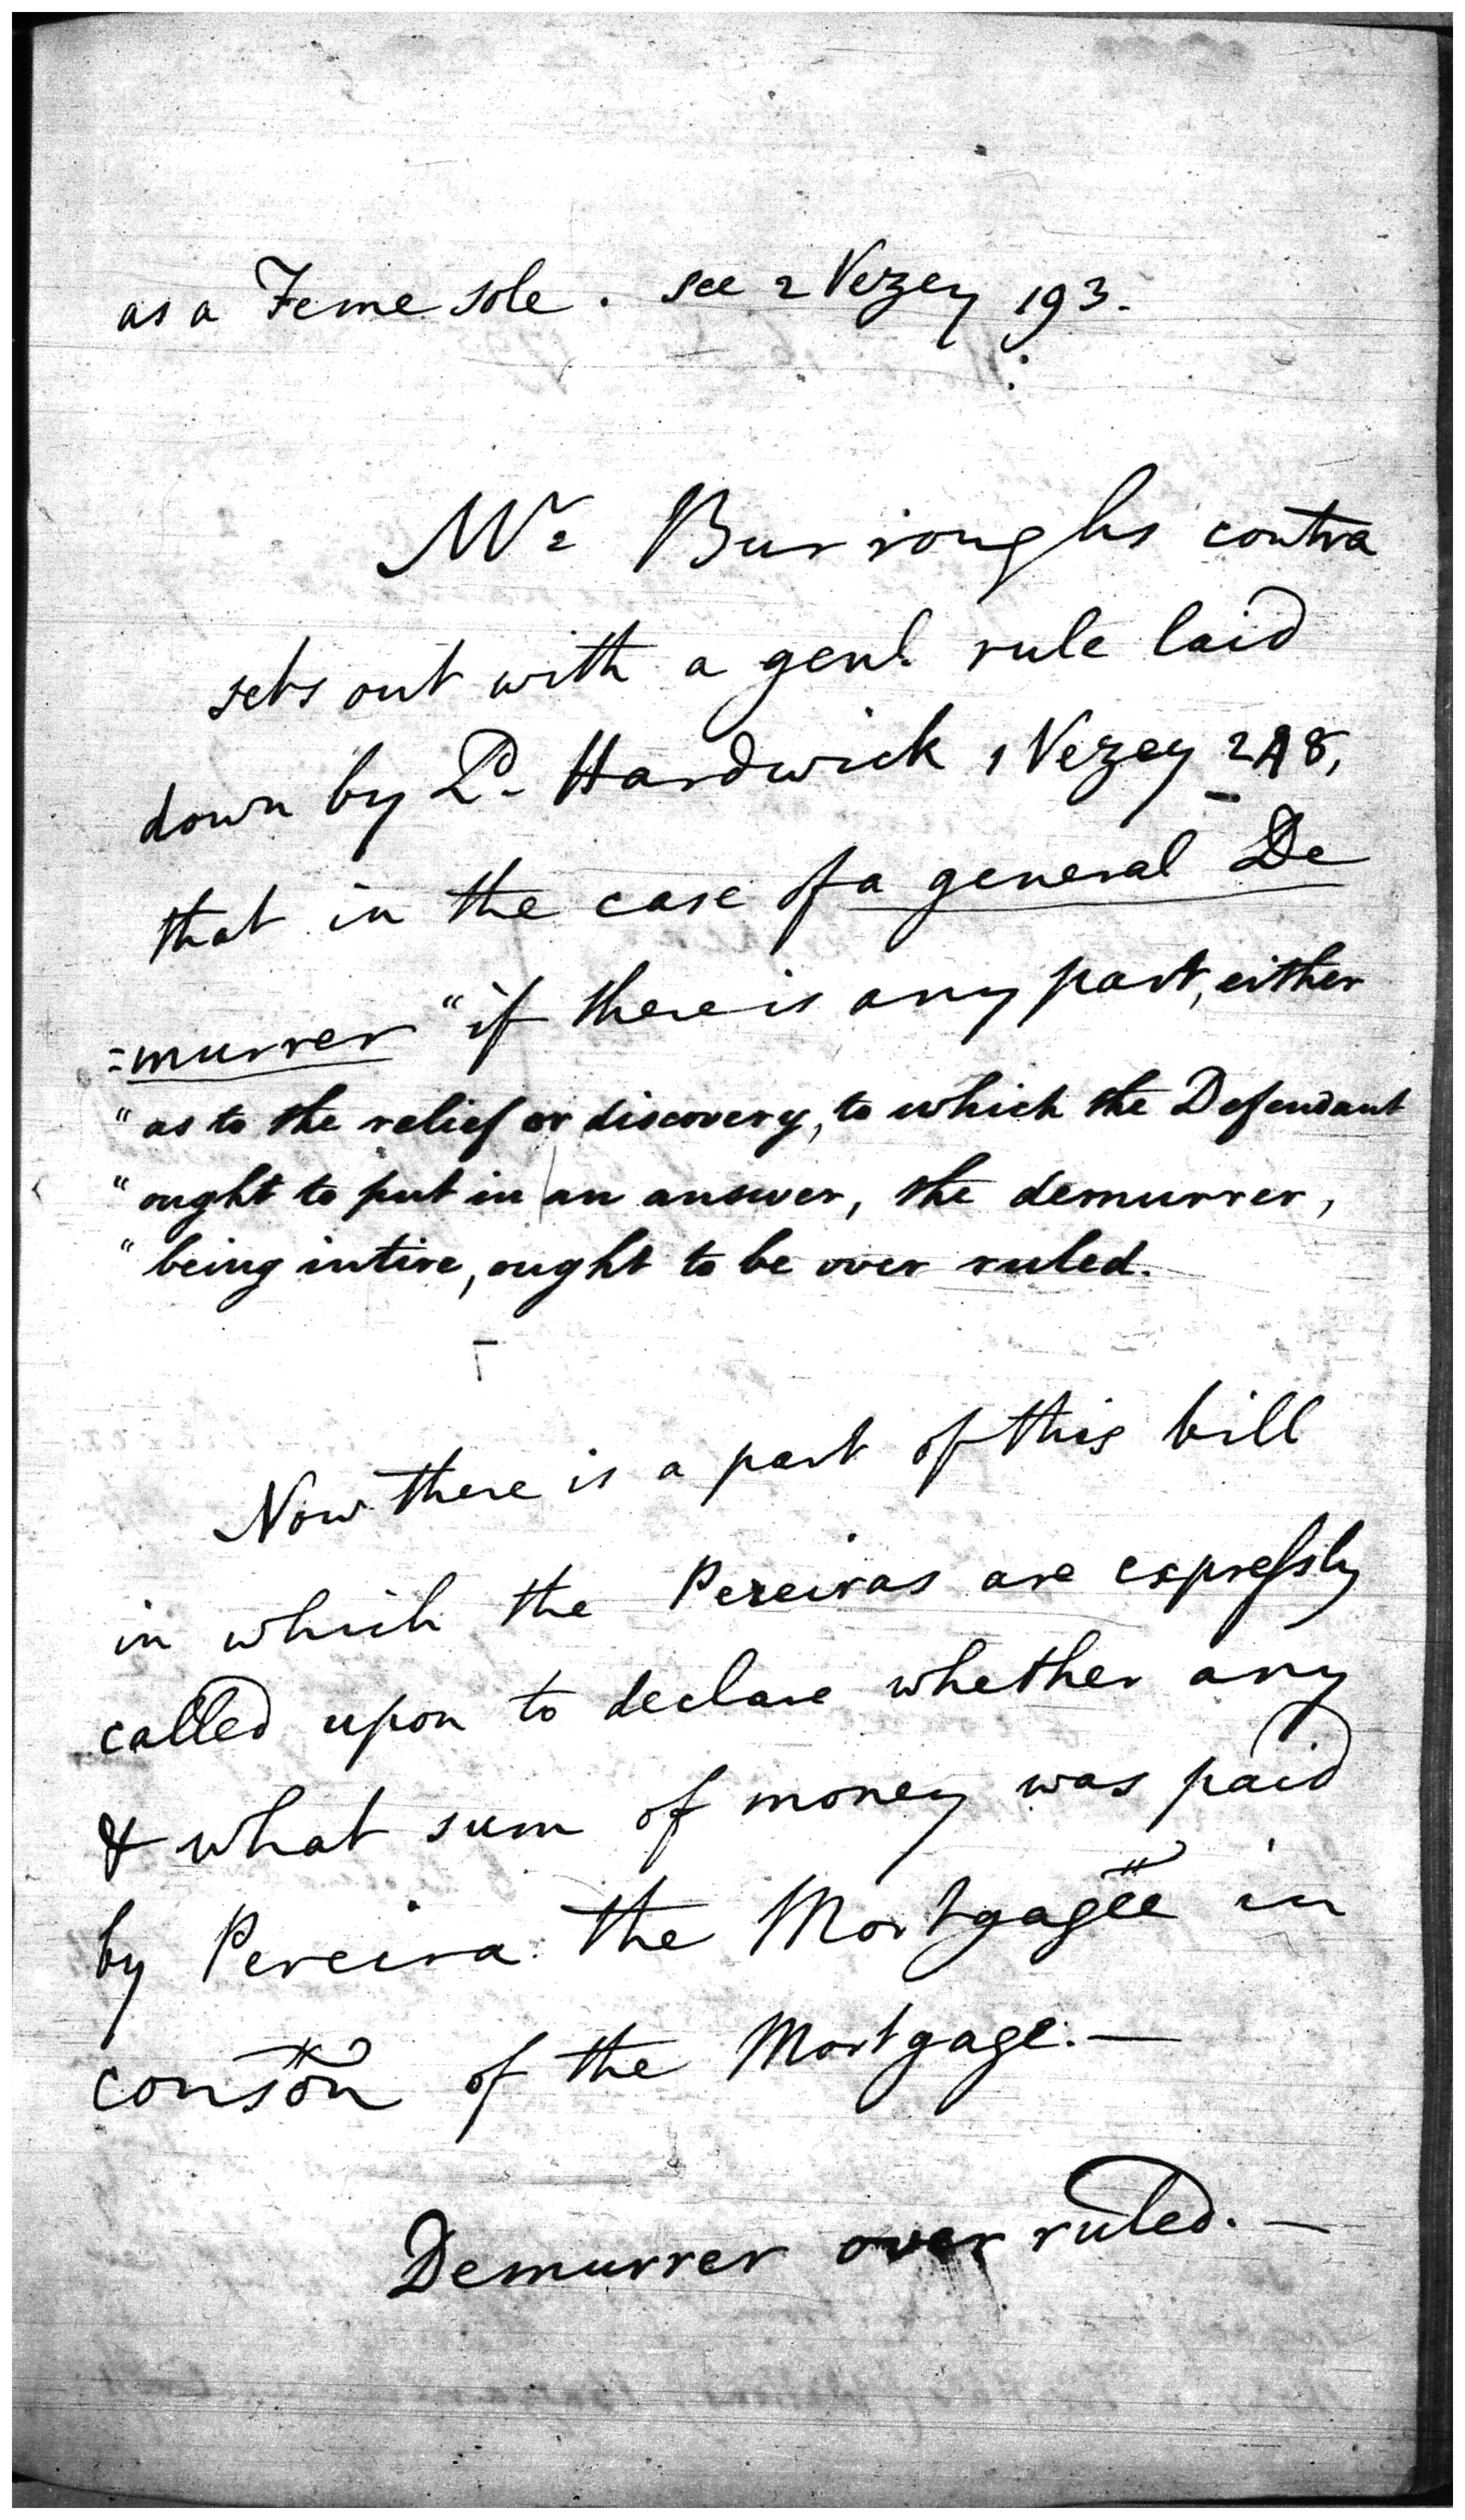 as a Feme sole. see 2 Vezey 193.
Mr Burroughs contra
sets out with a genl. rule laid
down by Ld. Hardwick 1 Vezey 248,
that in the case of a general De
=murrer "if there is any part, either
"as to the relief or discovery, to which the Defendant
"ought to put in an answer, the demurrer,
"being intire, ought to be over ruled.
Now there is a part of this bill
in which the Pereiras are expressly
called upon to declare whether any
& what sum of money was paid
by Pereira the Mortgagee in
conson of the Mortgage. —
Demurrer over ruled. —